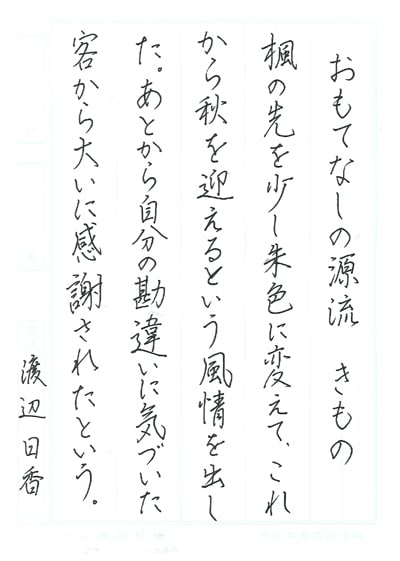 おもてなしの源流　きもの
楓の先を少し朱色に変えて、これ
から秋を迎えるという風情を出し
た。あとから自分の勘違いに気づいた
客から大いに感謝されたという。
渡辺日香